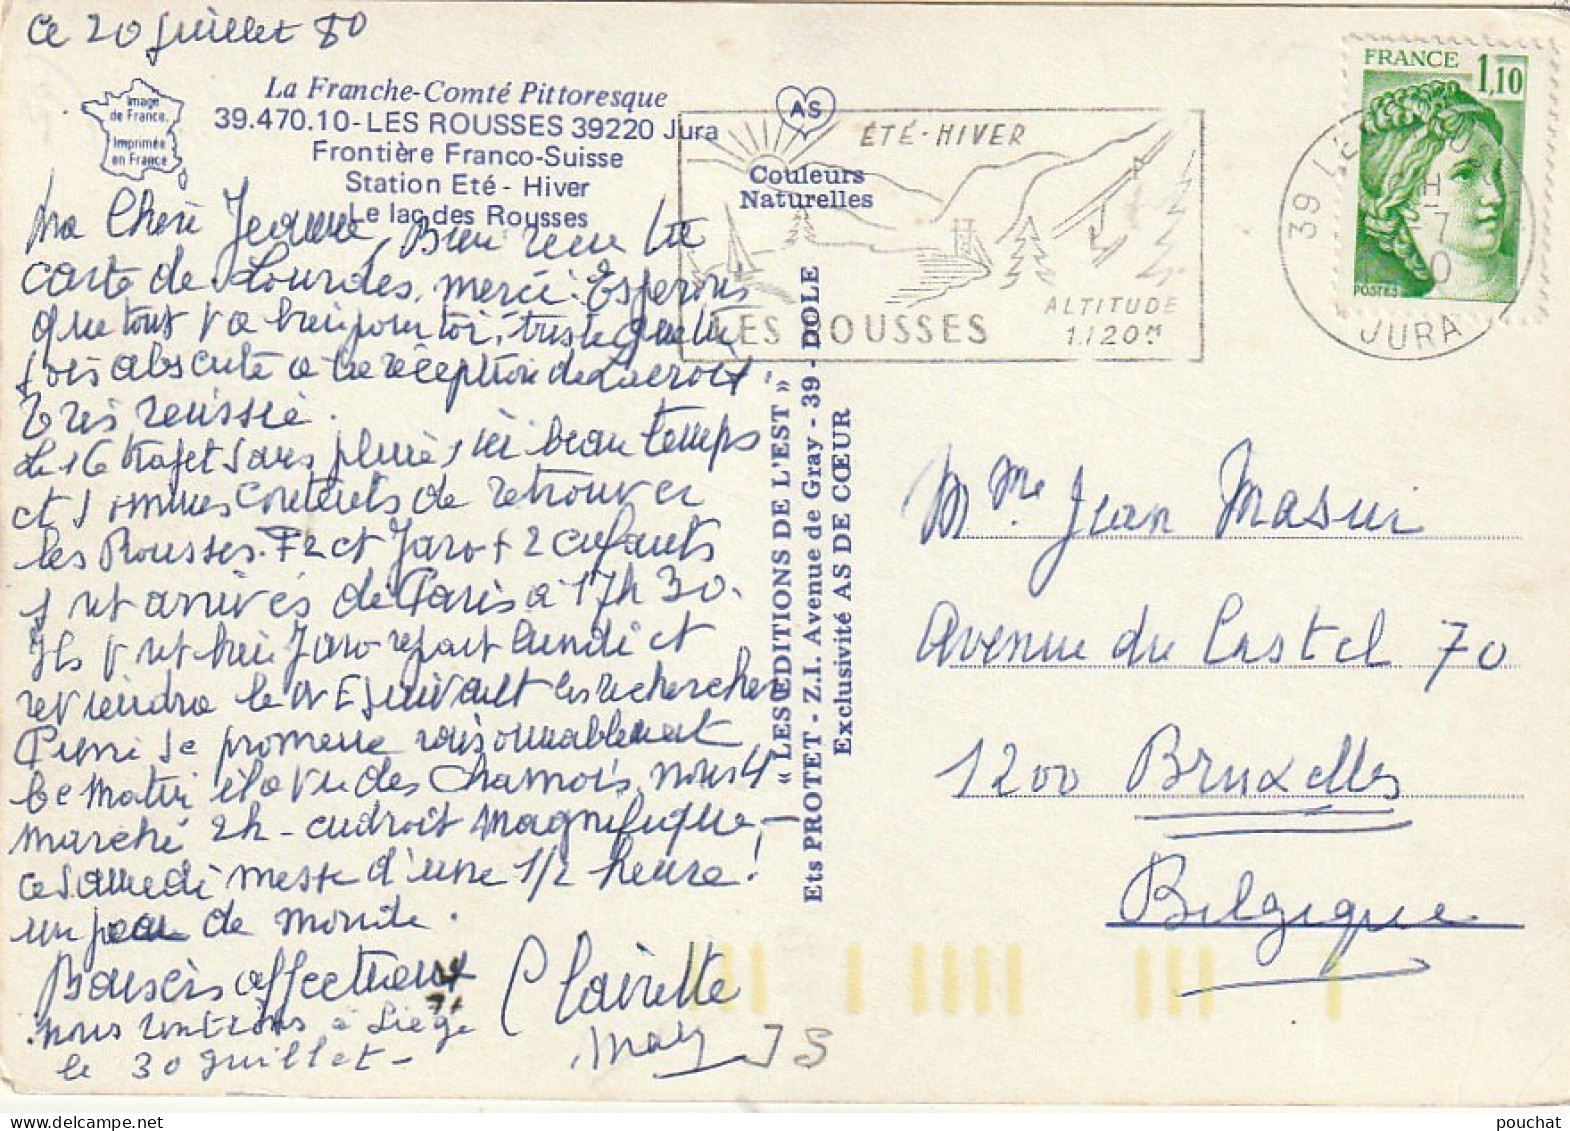 Ce 20 Juillet 80
Image
de France.
Imprimée
en France
La Franche-Comté Pittoresque
39.470.10-LES ROUSSES 39220 Jura
Frontière Franco-Suisse
Station Eté - Hiver
Le lac des Rousses
AS
Couleurs
Naturelles
ÉTÉ-HIVER
ALTITUDE
1.120M
LES ROUSSES
FRANCE 1,10
POSTES
39 LES
JURA
Ma Chère Jeanne, Bien reçu ta
carte de Lourdes, merci. Espérons
que tout va bien pour toi, triste que tu
sois absente à la réception de Lacroix,
très réussie.
Le 16 trajet sans pluie, ici beau temps
et sommes contents de retrouver
les Rousses. F2 et Jaro + 2 enfants
sont arrivés de Paris à 17h30.
Ils vont bien Jaro repart lundi et
reviendra le WE suivant les rechercher
se promène raisonnablement
le matin et la vue des Chamois, nous
marché 2h - endroit magnifique,-
ce Samedi messe d'une 1/2 heure!
un peu de monde.
Baisers affectueux
Clairette
nous rentrons à Liège
le 30 Juillet -
« LES EDITIONS DE L'EST »
Ets PROTET - Z.I. Avenue de Gray - 39 - DOLE
Exclusivité AS DE CŒUR
Mme Jean Masui
Avenue du Castel 70
1200 Bruxelles
Belgique
JS
pouchat